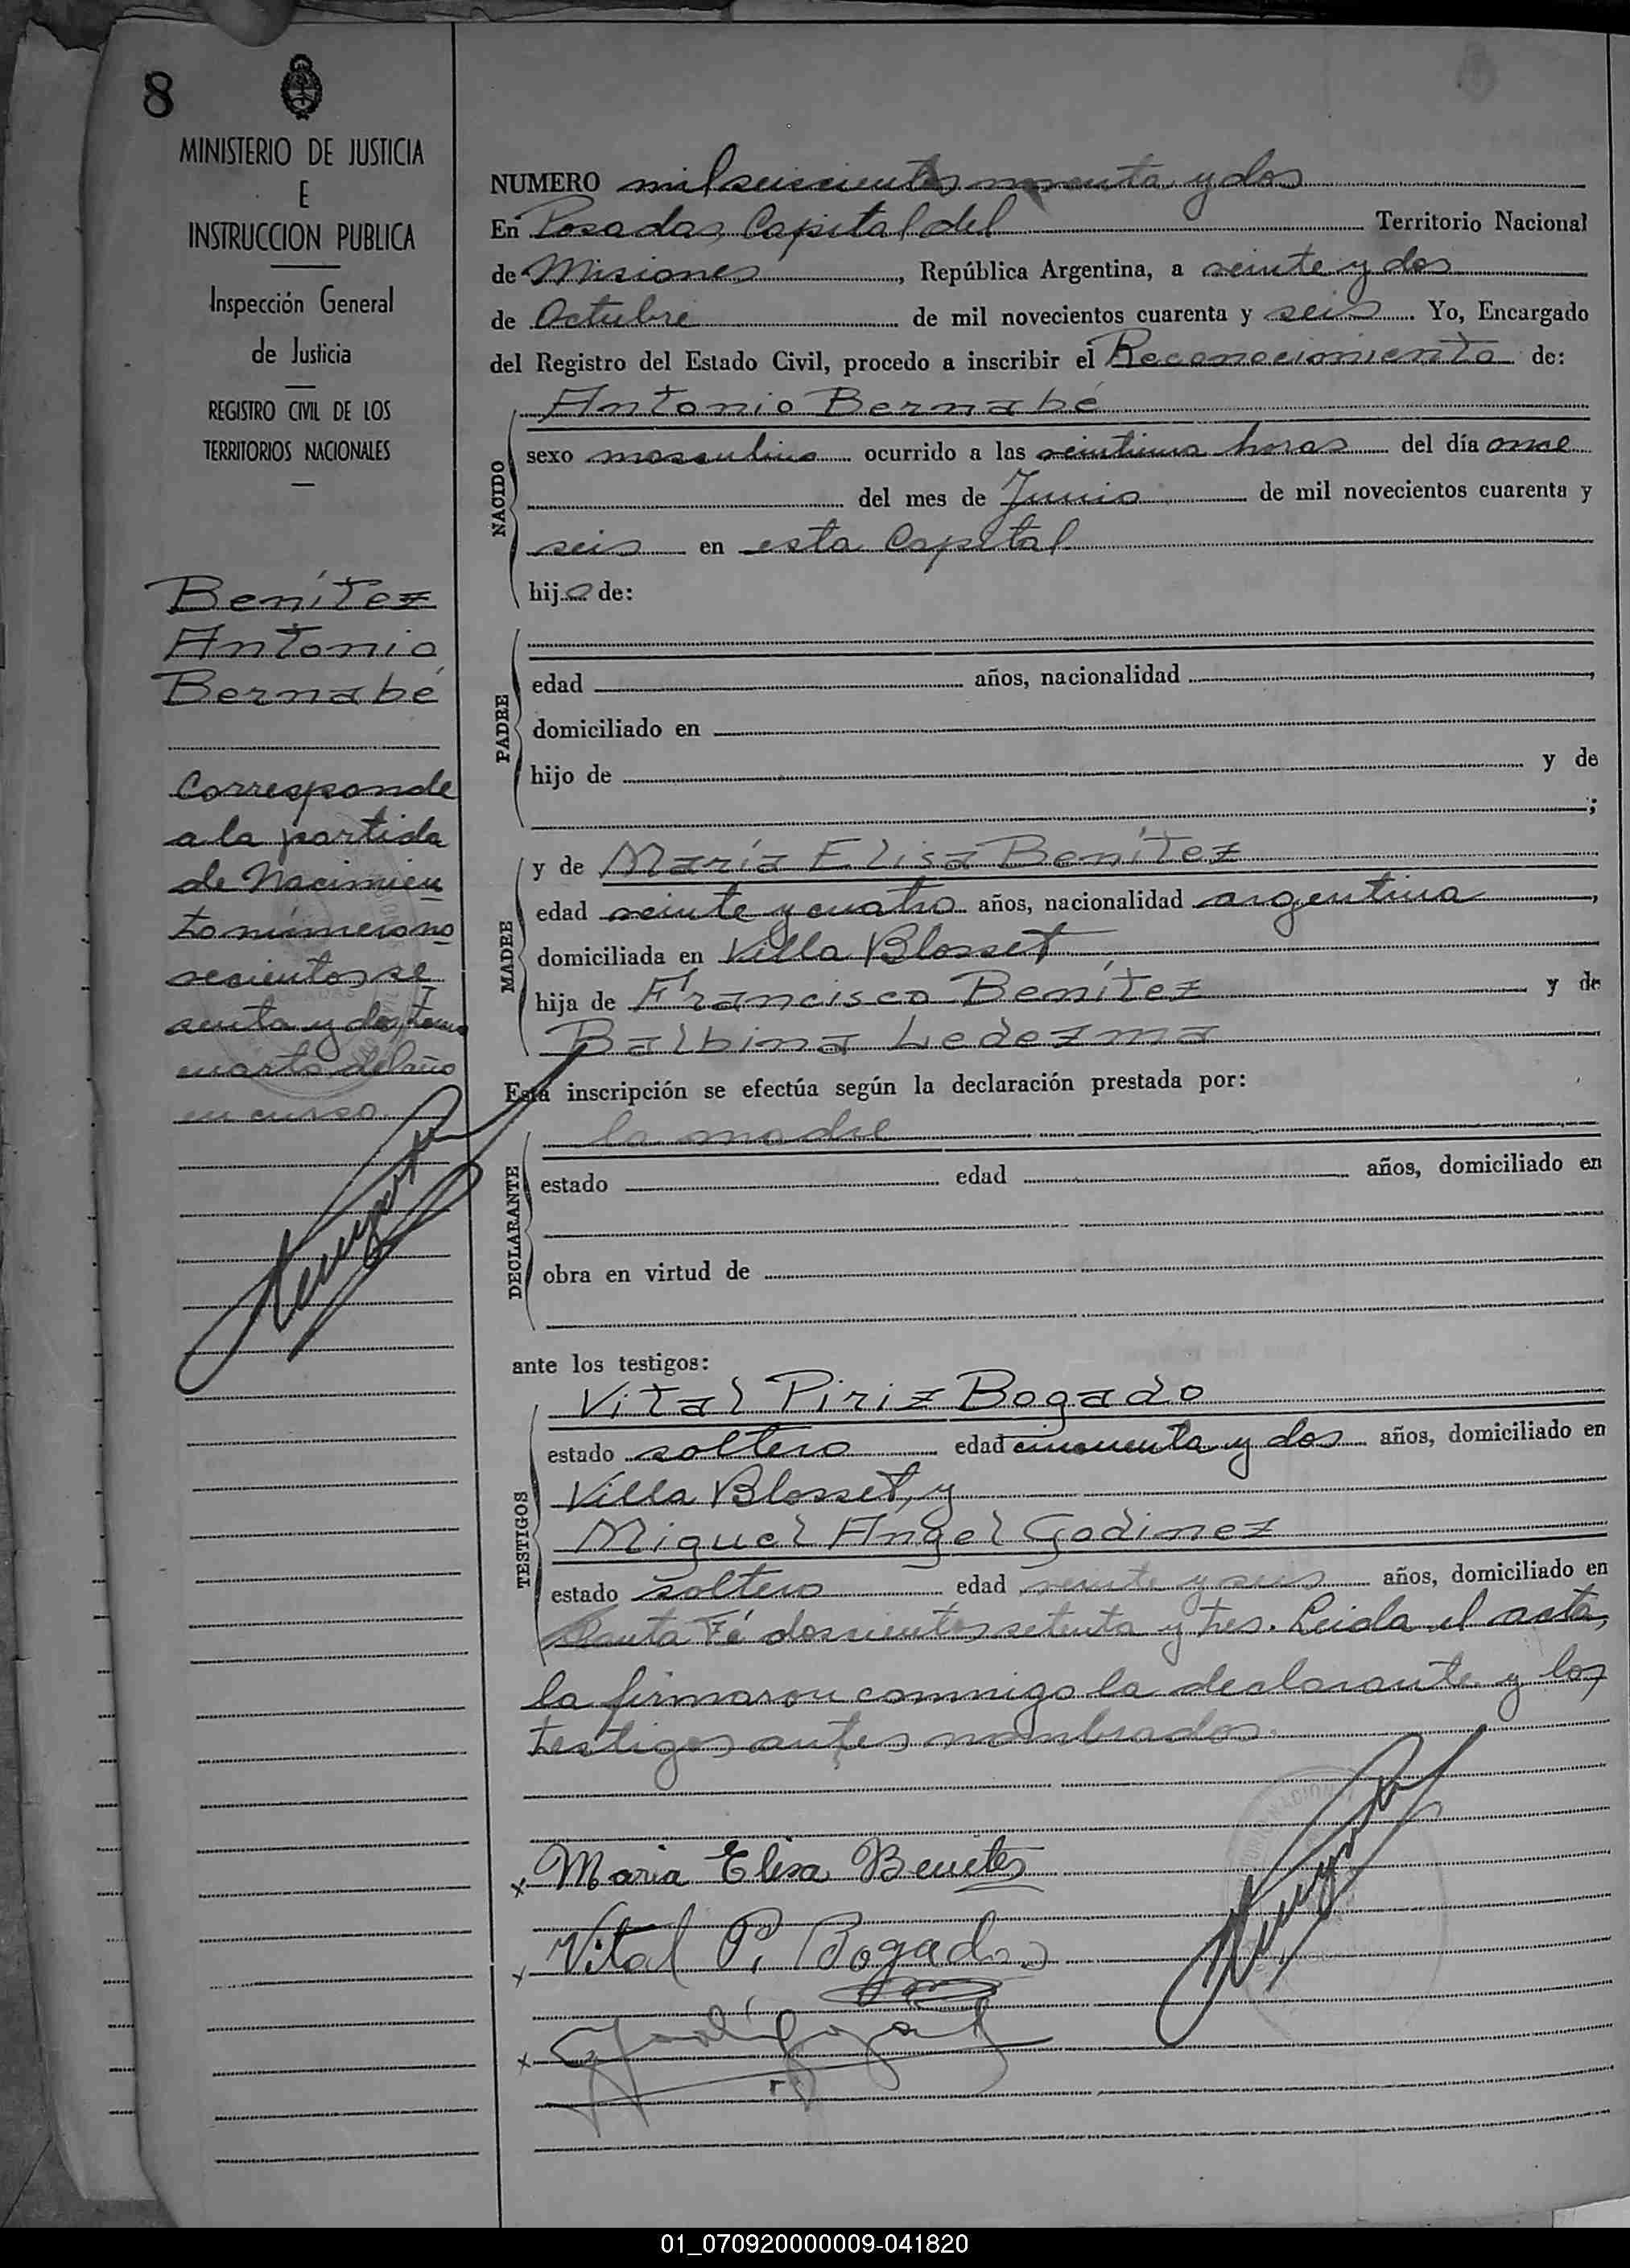 8
MINISTERIO DE JUSTICIA
E
INSTRUCCION PUBLICA
Inspección General
de Justicia
REGISTRO CIVIL DE LOS
TERRITORIOS NACIONALES
Benítez
Antonio
Bernabé
Corresponde
a la partida
de Nacimien
to número no
vecientos se
senta y dos, tomo
cuarto del año
en curso.
NUMERO mil seiscientos noventa y dos
En Posadas, Capital del Territorio Nacional
de Misiones, República Argentina, a veinte y dos
de Octubre de mil novecientos cuarenta y seis. Yo, Encargado
del Registro del Estado Civil, procedo a inscribir el Reconocimiento de:
Antonio Bernabé
NACIDO
sexo masculino ocurrido a las veintiuna horas del día once
del mes de Junio de mil novecientos cuarenta y
seis en esta Capital
hijo de:
PADRE
edad años, nacionalidad
domiciliado en
hijo de y de
;
MADRE
y de María Elisa Benítez
edad veinte y cuatro años, nacionalidad argentina,
domiciliada en Villa Blosset
hija de Francisco Benítez y de
Balbina Ledezma
Esta inscripción se efectúa según la declaración prestada por:
DECLARANTE
la madre
estado edad años, domiciliado en
obra en virtud de
ante los testigos:
TESTIGOS
Vital Piriz Bogado
estado soltero edad cincuenta y dos años, domiciliado en
Villa Blosset, y
Miguel Angel Godinez
estado soltero edad veinte y seis años, domiciliado en
Santa Fé doscientos setenta y tres. Leida el acta,
la firmaron conmigo la declarante y los
testigos antes nombrados.
x Maria Elisa Benites
x Vital P. Bogado
x
01_070920000009-041820